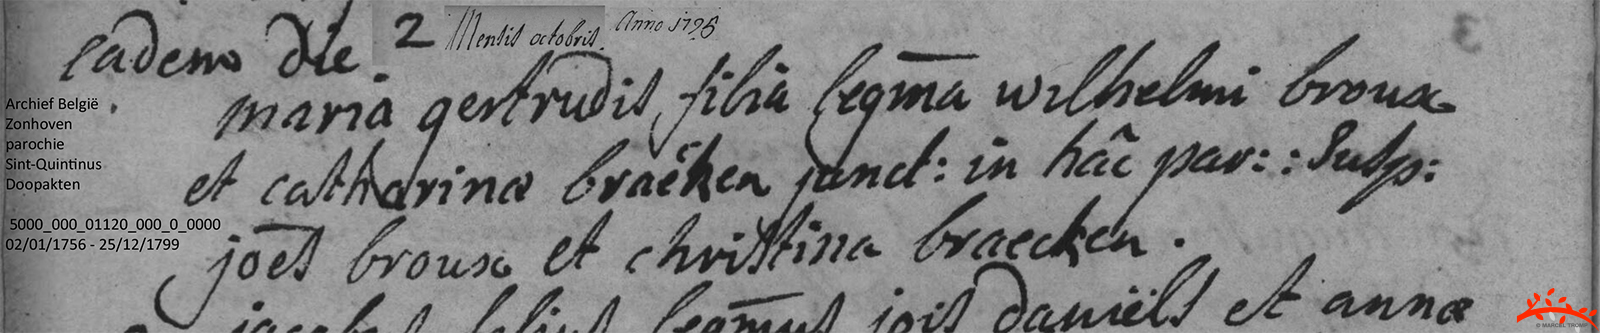 eadem die 2 Mensis octobris Anno 1796
maria gertrudis filia legma wilhelmi broux
et catharinæ braeken junct: in hac par: : Susp:
joes broux et christina braecken.
jacobus filius legmus jois daniëls et annæ
Archief België
Zonhoven
parochie
Sint-Quintinus
Doopakten
5000_000_01120_000_0_0000
02/01/1756 - 25/12/1799
© MARCEL TROMP